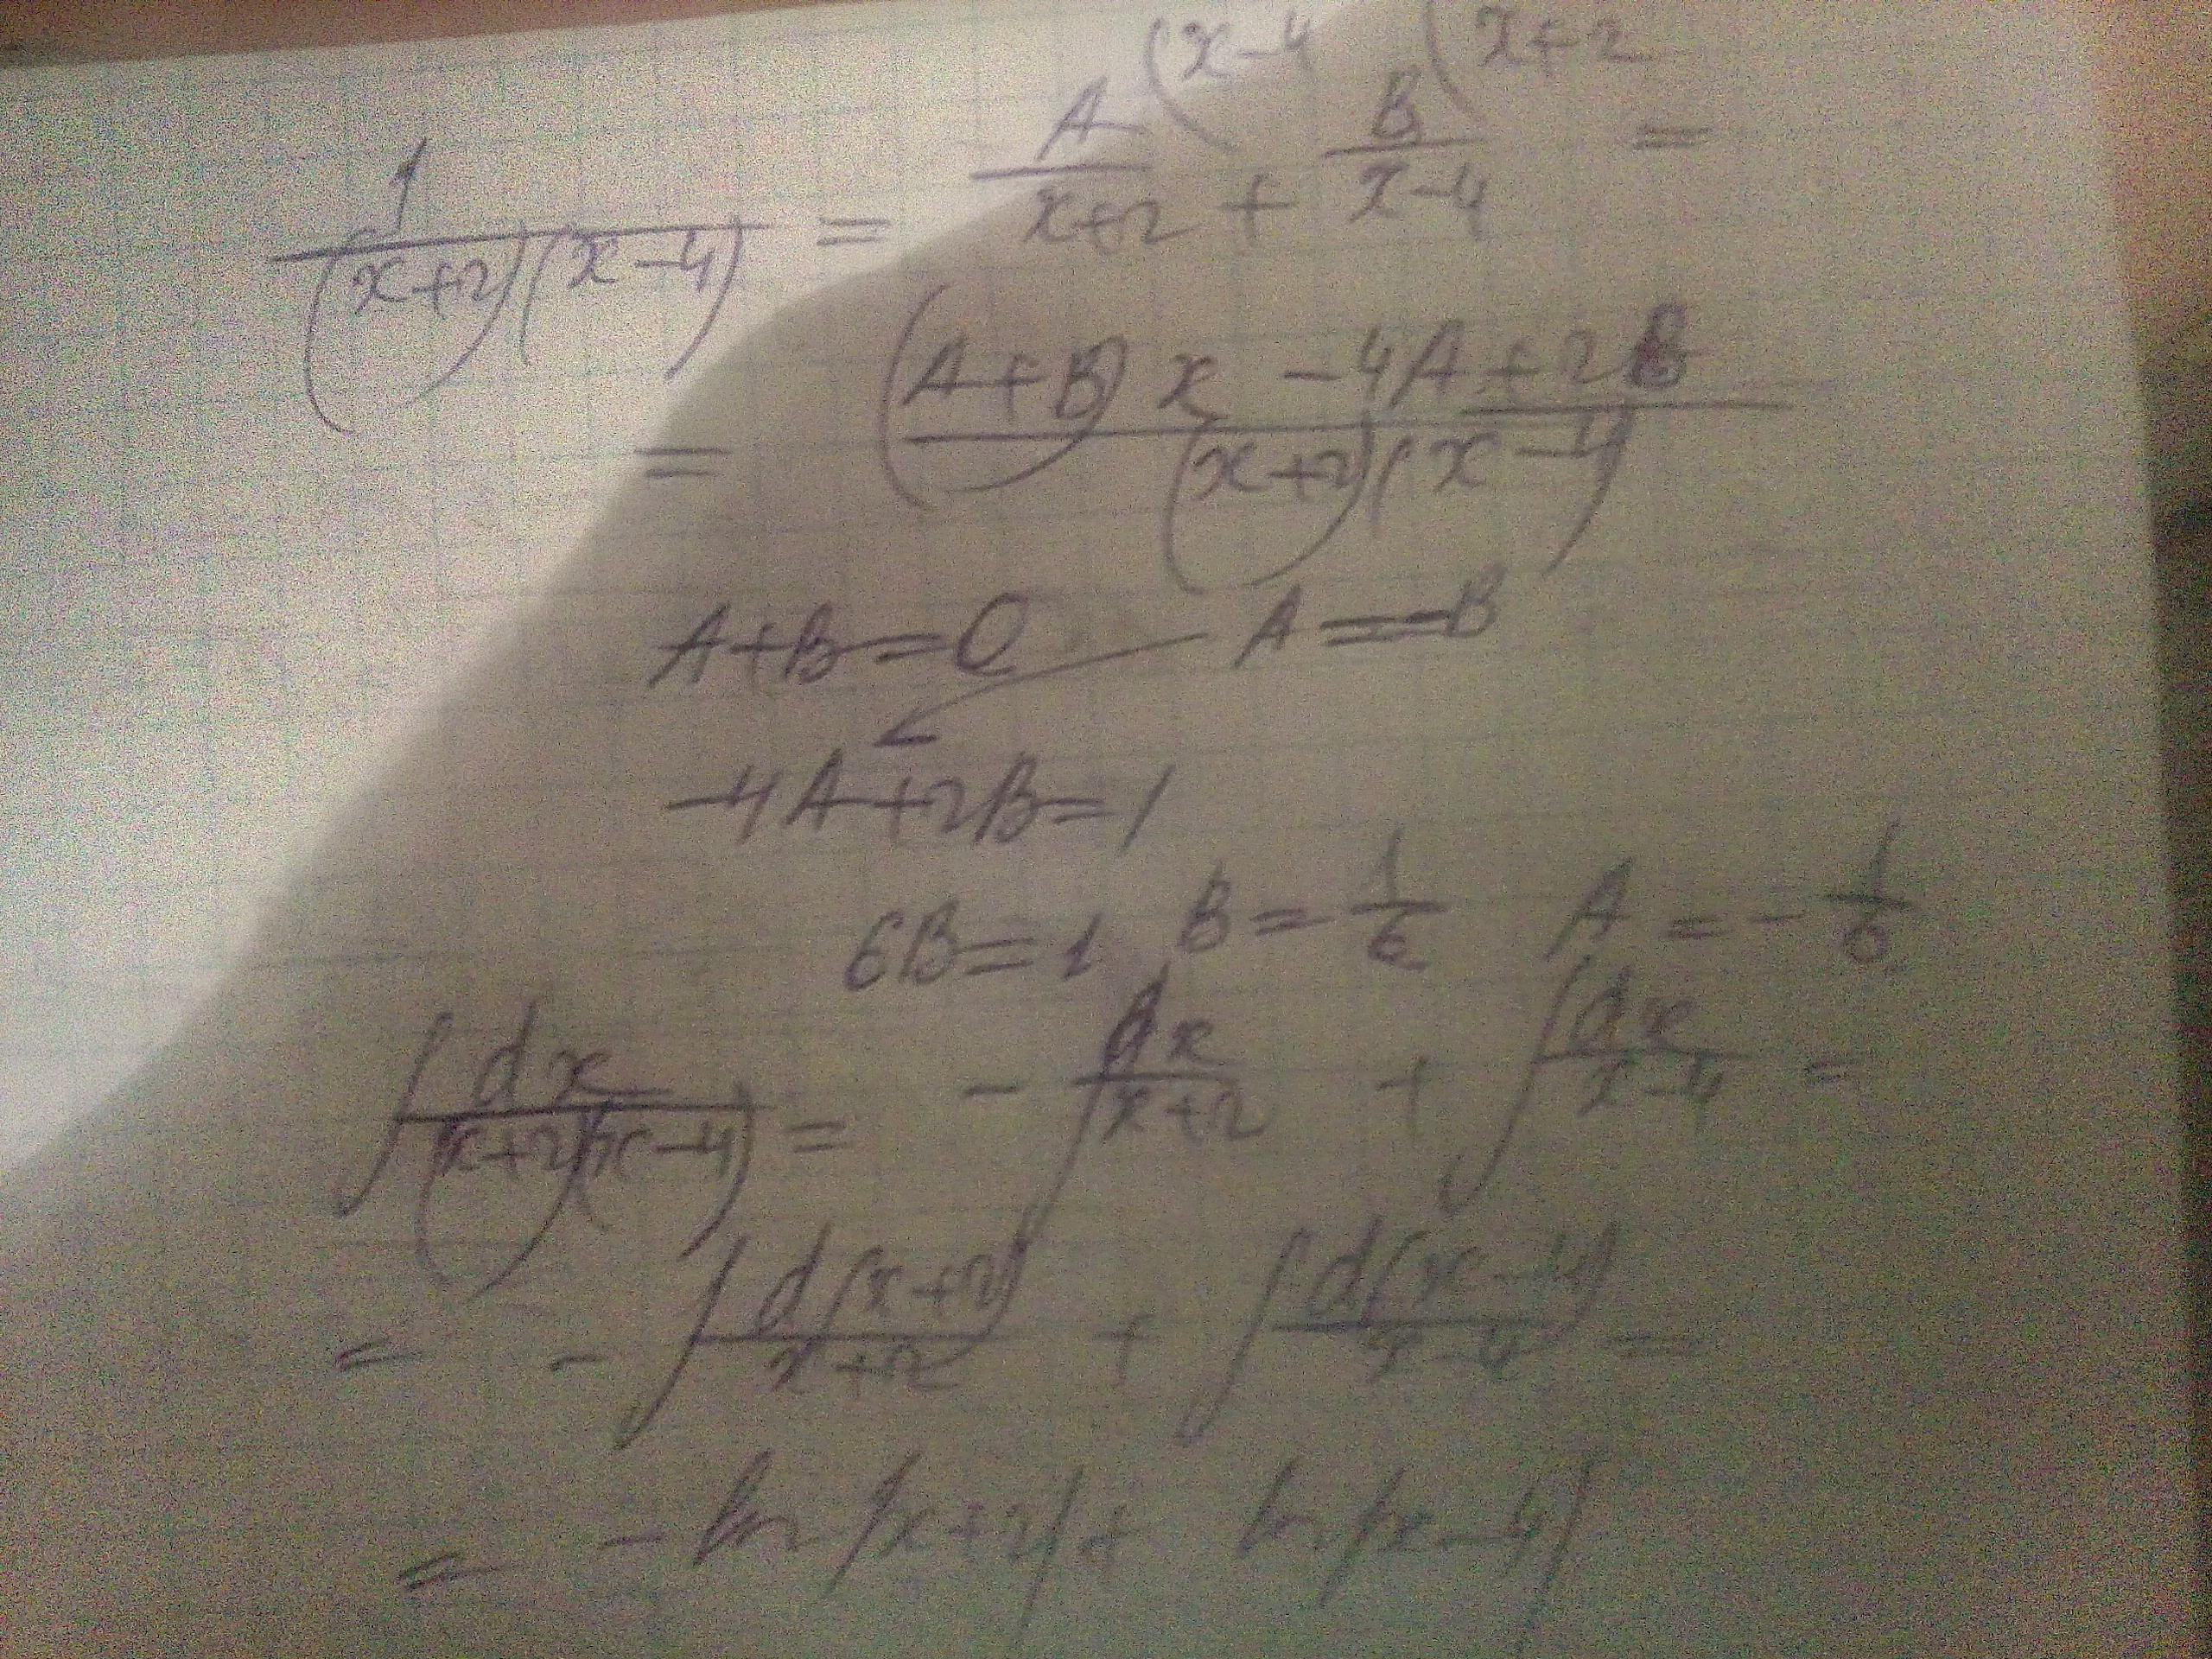 (x-4 (x+2
1/((x+2)(x-4)) = A/(x+2) + B/(x-4) =
= ((A+B)x -4A+2B)/((x+2)(x-4))
A+B=0 A=-B
-4A+2B=1
6B=1 B=1/6 A=-1/6
∫dx/((x+2)(x-4)) = -∫dx/(x+2) + ∫dx/(x-4) =
= -∫d(x+2)/(x+2) + ∫d(x-4)/(x-4) =
= -ln|x+2|+ ln|x-4|